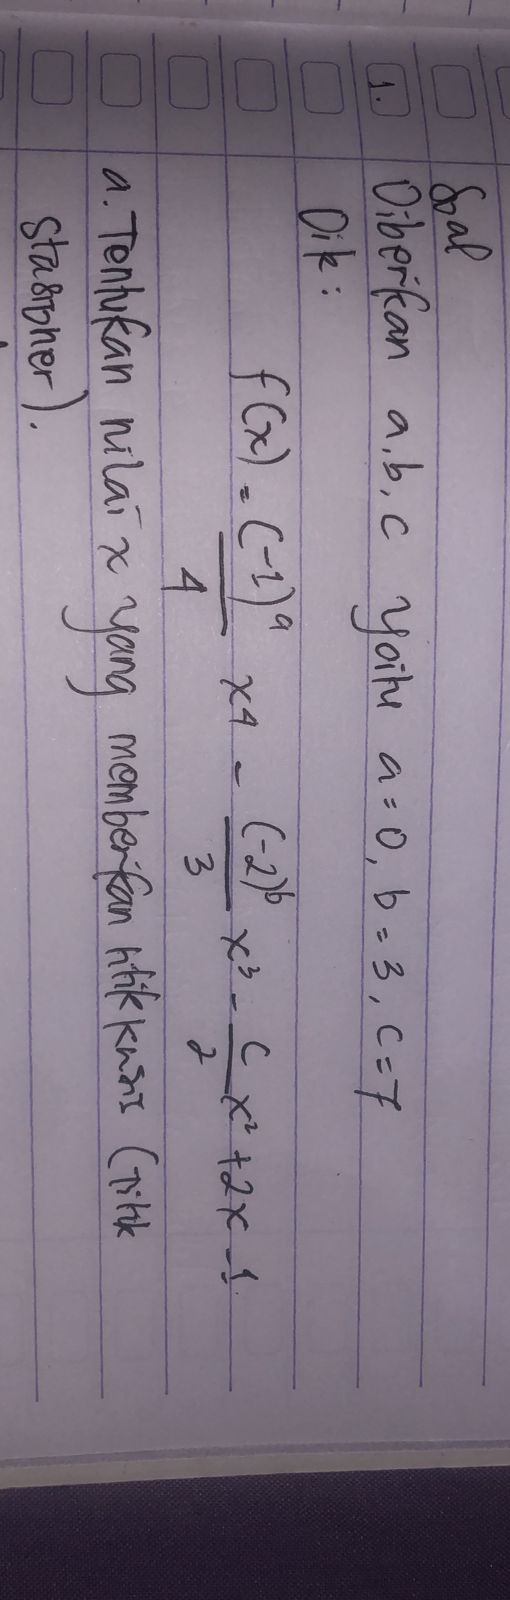 Soal
1. Diberikan a, b, c yaitu a = 0, b = 3, c = 7
Dik :
f(x) = (-1)^a/4 x^4 - (-2)^b/3 x^3 - c/2 x^2 + 2x - 1.
a. Tentukan nilai x yang memberikan titik kritis (Titik
Stasioner).